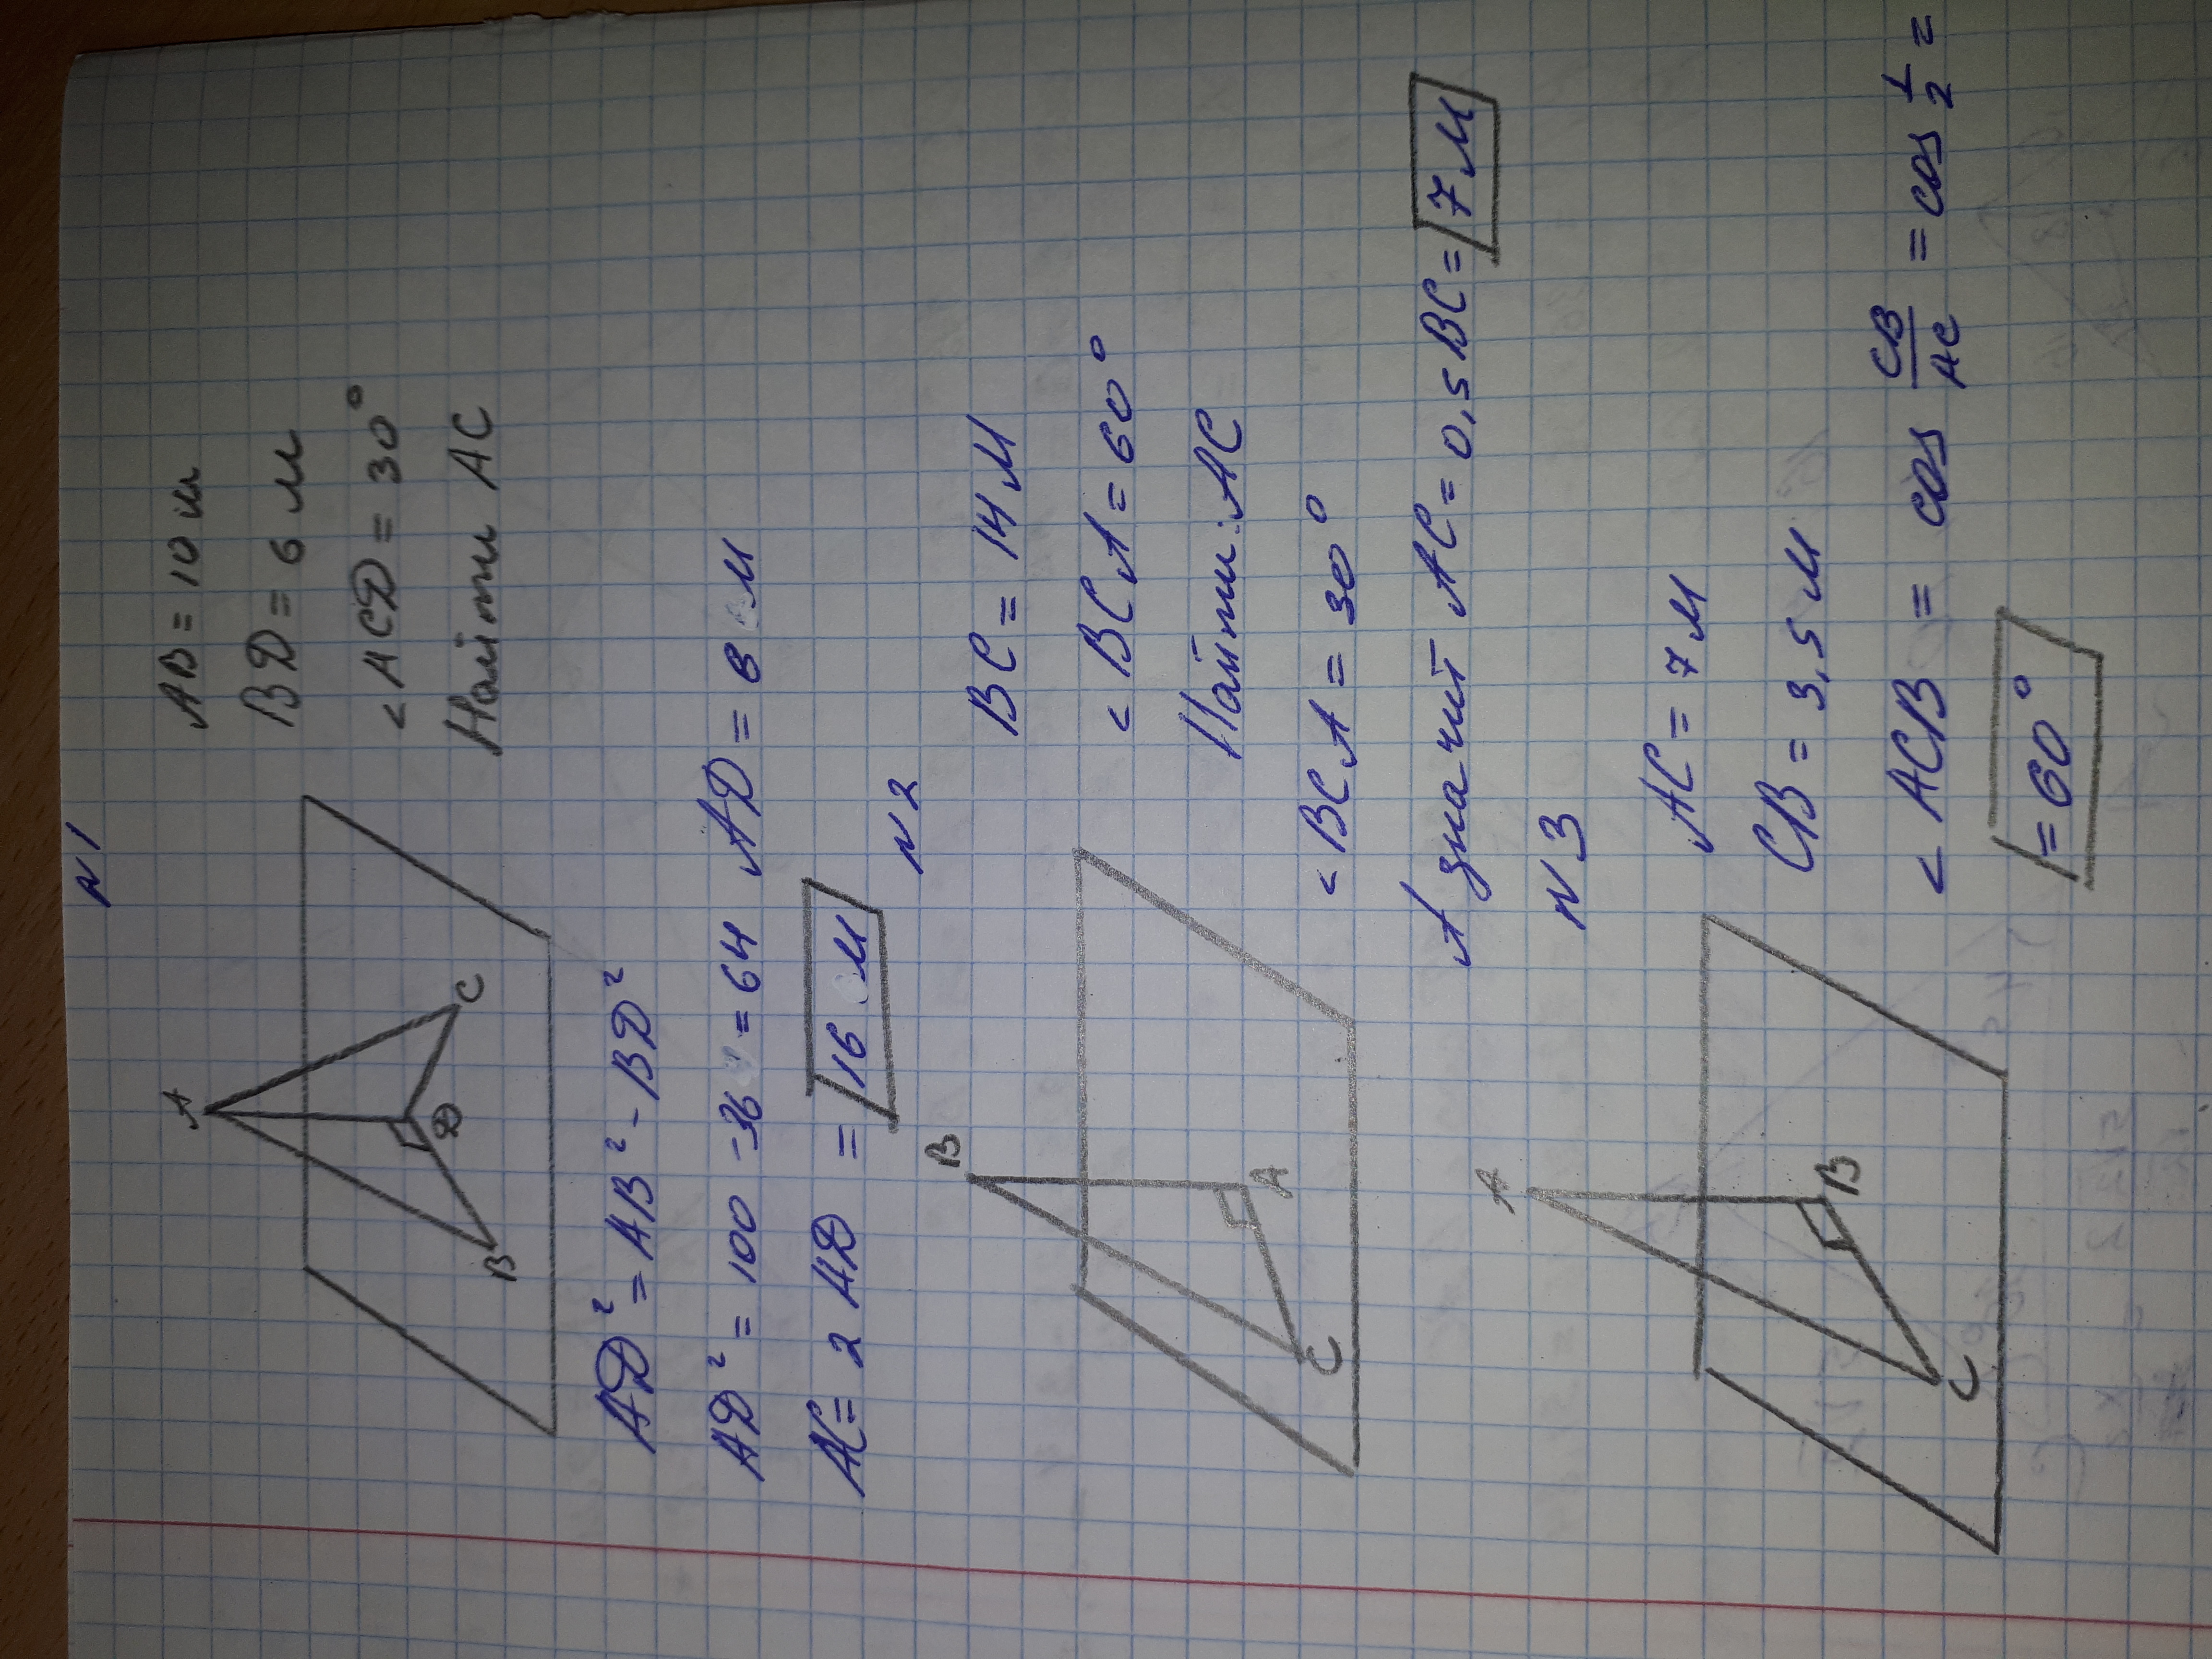 N 1
A
AB = 10 м
BD = 6 м
< ACD = 30°
Найти AC
B
D
C
AD² = AB² - BD²
AD² = 100 - 36 = 64 AD = 8 м
AC = 2 AD = 16 м
N 2
B
BC = 14 м
< BCA = 60°
Найти: AC
C
A
< BCA = 30°
А значит AC = 0,5 BC = 7 м
N 3
A
AC = 7 м
CB = 3,5 м
C
B
< ACB = cos CB/AC = cos 1/2 =
= 60°